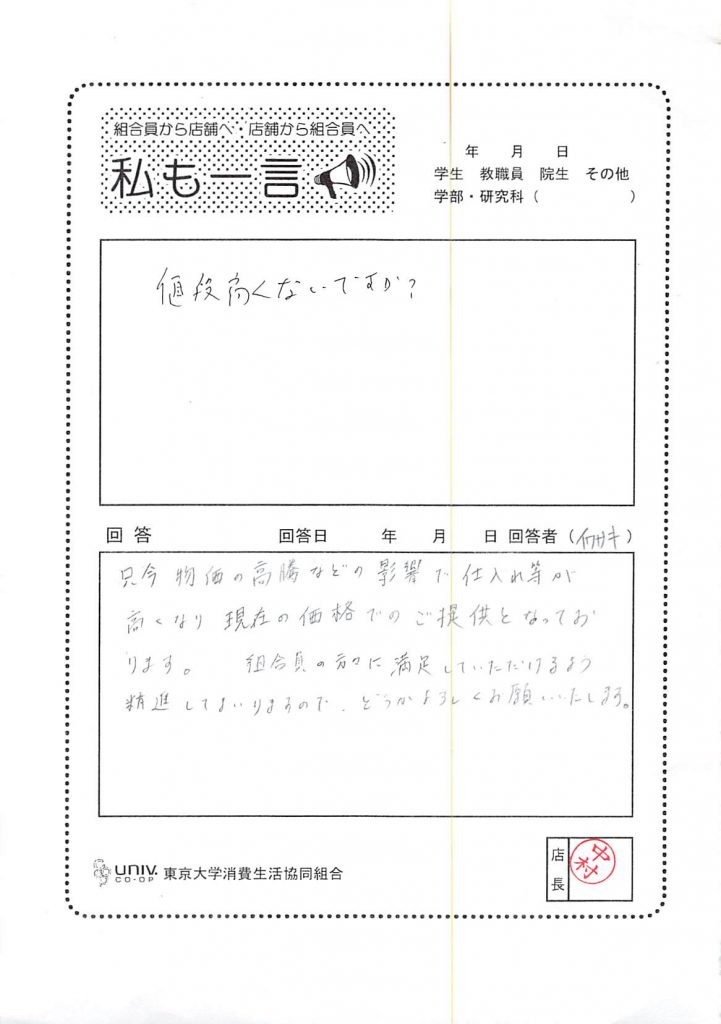 組合員から店舗へ・店舗から組合員へ
私も一言
年 月 日
学生 教職員 院生 その他
学部・研究科( )
値段高くないですか?
回答 回答日 年 月 日 回答者(イワサキ)
只今 物価の高騰などの影響で 仕入れ等が
高くなり 現在の価格でのご提供となってお
ります。 組合員の方々に満足していただけるよう
精進してまいりますので、どうかよろしくお願いいたします。
UNIV.
CO-OP
東京大学消費生活協同組合
店長
中村